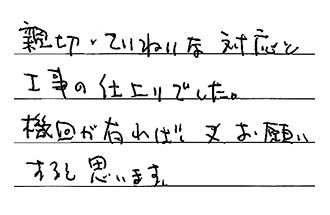 親切・ていねいな対応と
工事の仕上りでした。
機会が有れば又お願い
すると思います。